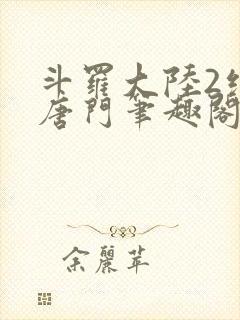 斗羅大陸2
唐門筆趣閣
余麗苹